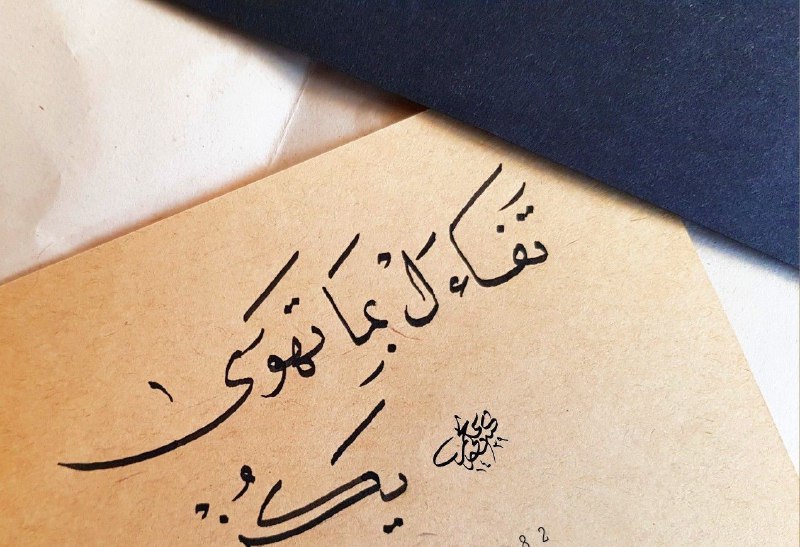 تفاءَلْ بِمَا تهوى
يكُن
82